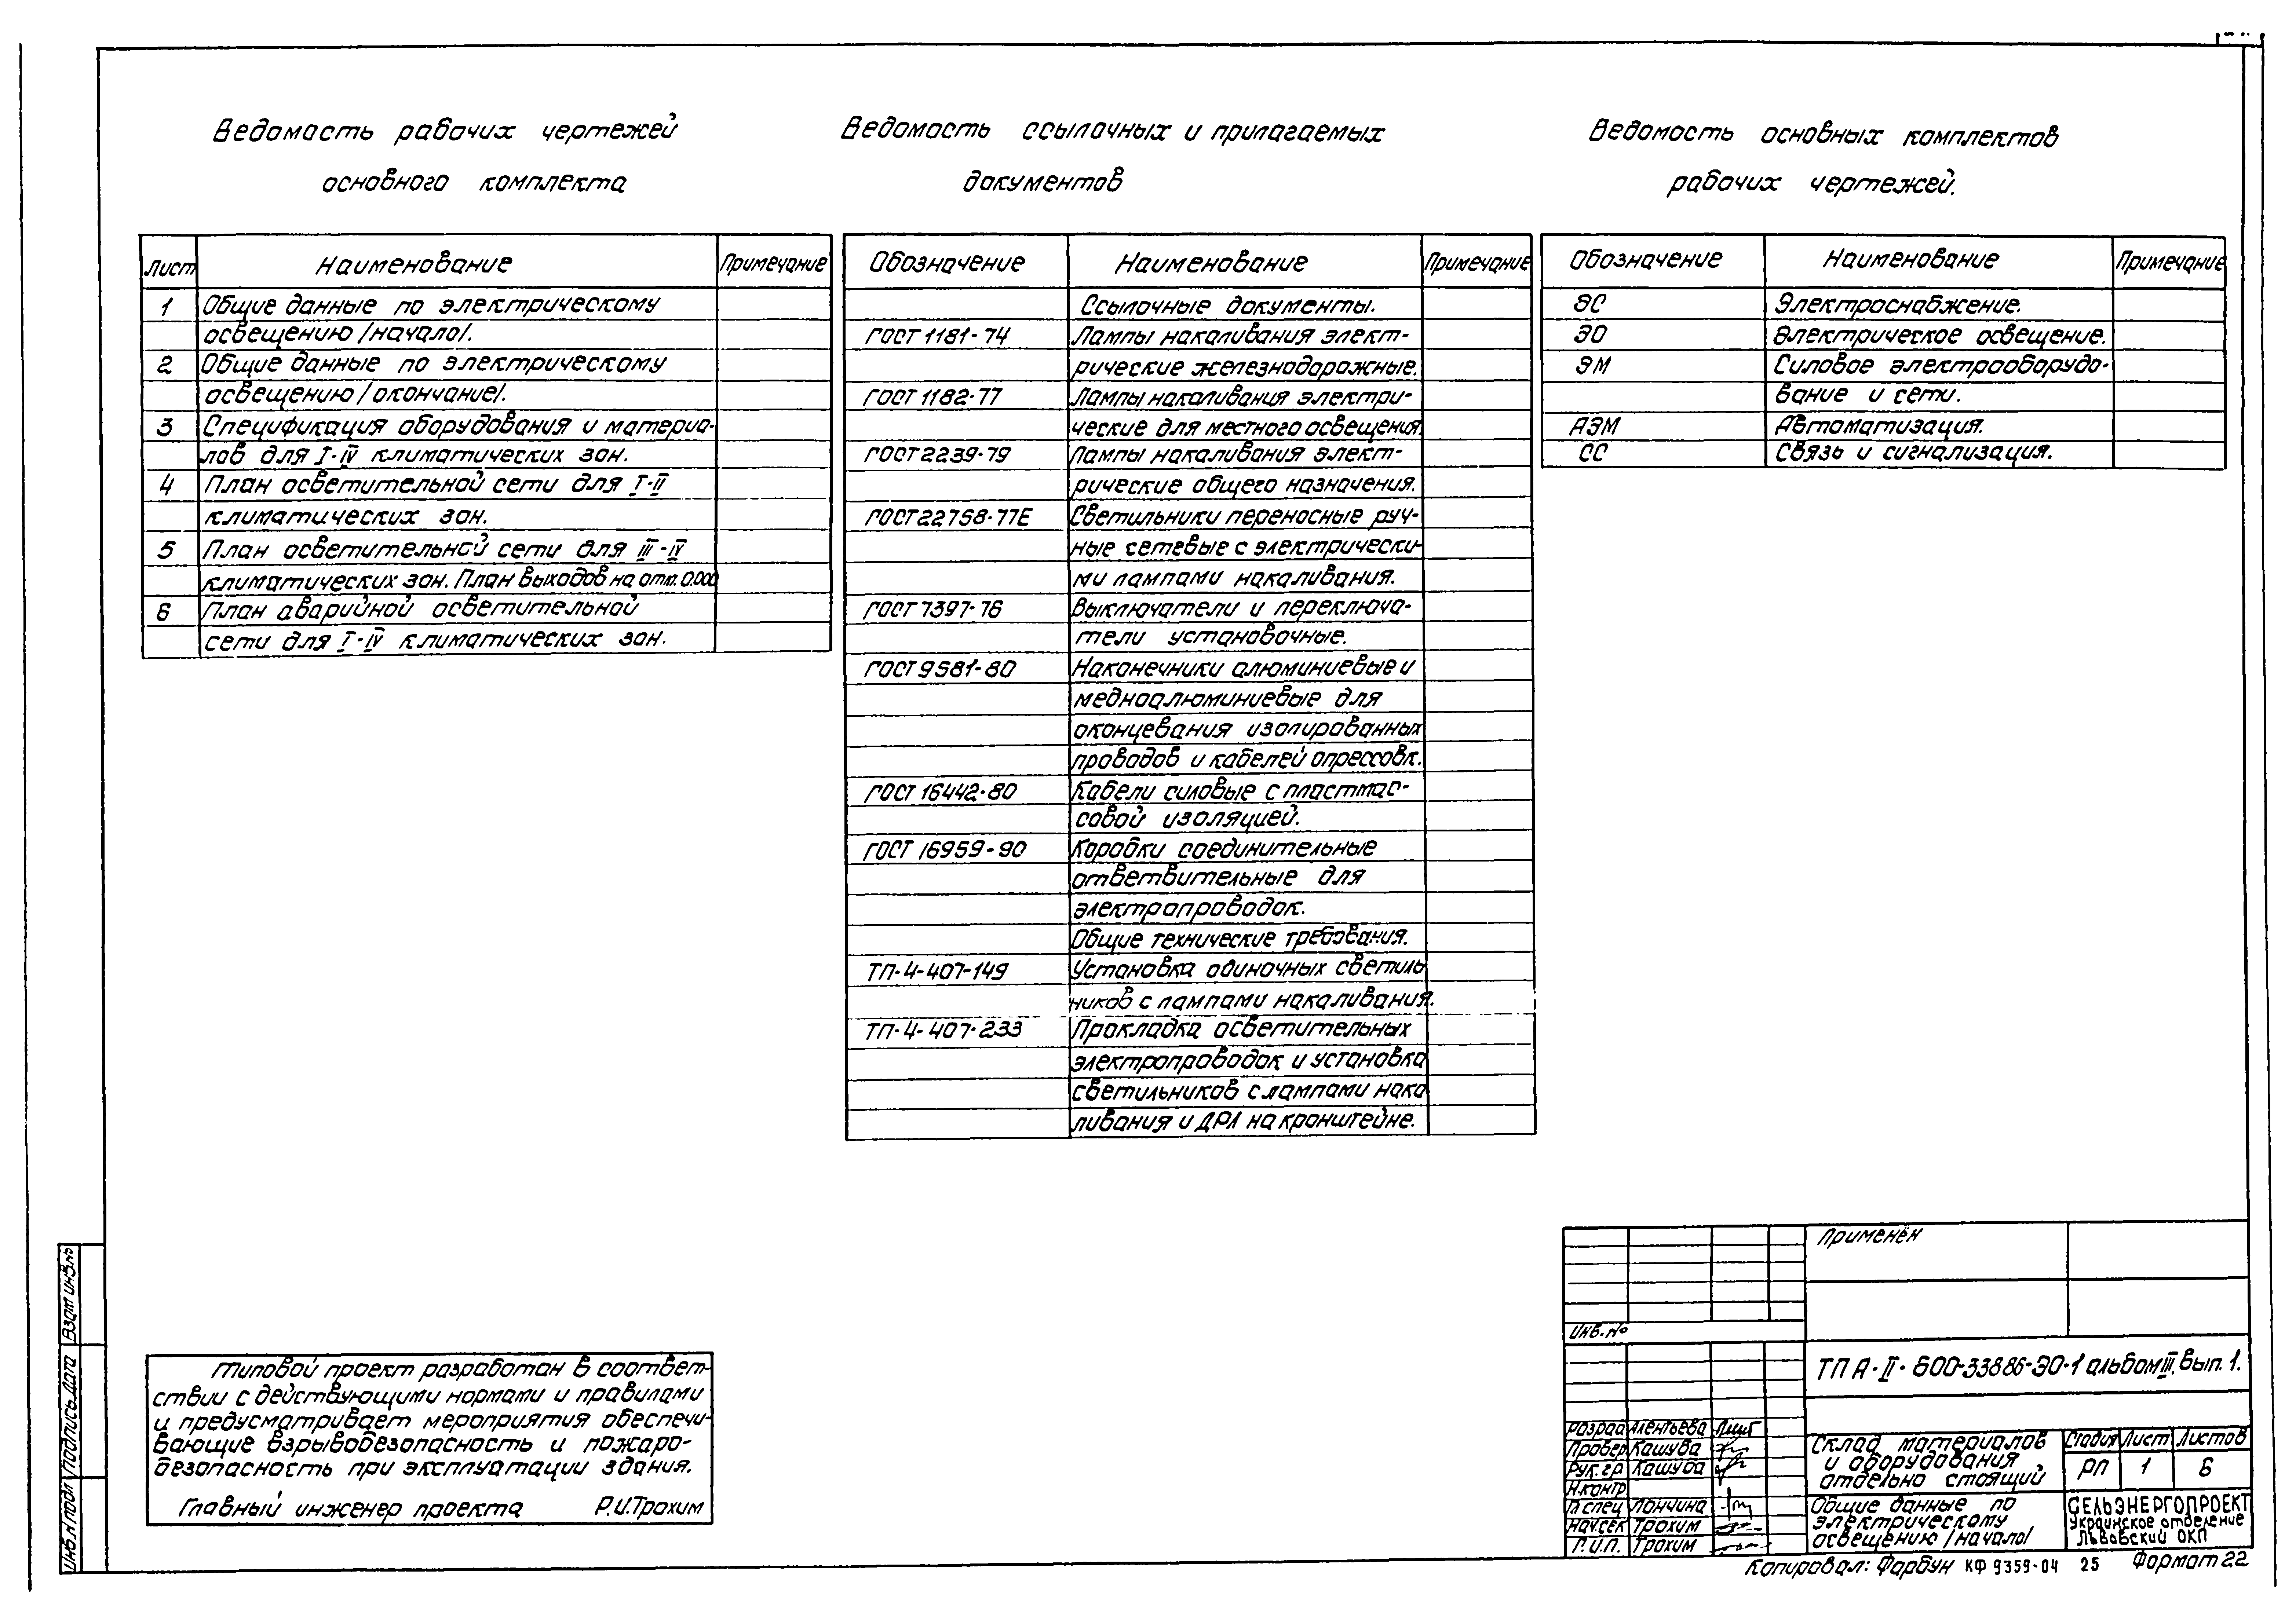 Ведомость рабочих чертежей
основного комплекта
Лист Наименование Примечание
1 Общие данные по электрическому
освещению /начало/.
2 Общие данные по электрическому
освещению /окончание/.
3 Спецификация оборудования и материа-
лов для I-IV климатических зон.
4 План осветительной сети для I-II
климатических зон.
5 План осветительной сети для III-IV
климатических зон. План выходов на отм. 0.000
6 План аварийной осветительной
сети для I-IV климатических зон.
Ведомость ссылочных и прилагаемых
документов
Обозначение Наименование Примечание
Ссылочные документы.
ГОСТ 1181-74 Лампы накаливания элект-
рические железнодорожные.
ГОСТ 1182-77 Лампы накаливания электри-
ческие для местного освещения.
ГОСТ 2239-79 Лампы накаливания элект-
рические общего назначения.
ГОСТ 22758-77Е Светильники переносные руч-
ные сетевые с электрически-
ми лампами накаливания.
ГОСТ 7397-76 Выключатели и переключа-
тели установочные.
ГОСТ 9581-80 Наконечники алюминиевые и
медноалюминиевые для
оконцевания изолированных
проводов и кабелей опрессовк.
ГОСТ 16442-80 Кабели силовые с пластмас-
совой изоляцией.
ГОСТ 16959-90 Коробки соединительные
ответвительные для
электропроводок.
Общие технические требования.
ТП-4-407-149 Установка одиночных светиль
ников с лампами накаливания.
ТП-4-407-233 Прокладка осветительных
электропроводок и установка
светильников с лампами нака-
ливания и ДРЛ на кронштейне.
Ведомость основных комплектов
рабочих чертежей.
Обозначение Наименование Примечание
ЭС Электроснабжение.
ЭО Электрическое освещение.
ЭМ Силовое электрооборудо-
вание и сети.
АЭМ Автоматизация.
СС Связь и сигнализация.
Типовой проект разработан в соответ-
ствии с действующими нормами и правилами
и предусматривает мероприятия обеспечи-
вающие взрывобезопасность и пожаро-
безопасность при эксплуатации здания.
Главный инженер проекта Р.И.Трохим
Инв.N подл Подпись дата Взам инв.№
Применён
Инв.№
ТП А-II-600-338.86-ЭО-1 альбом III. Вып. 1.
Разраб Леонтьева
Провер Кашуба
Рук.гр Кашуба
Н.контр
Гл.спец Лончина
Нач.сек Трохим
Г.И.П. Трохим
Склад материалов
и оборудования
отдельно стоящий
Стадия Лист Листов
РП 1 6
Общие данные по
электрическому
освещению /начало/
СЕЛЬЭНЕРГОПРОЕКТ
Украинское отделение
Львовский ОКП
Копировал: Фарбун КФ 9359-04 25 Формат 22